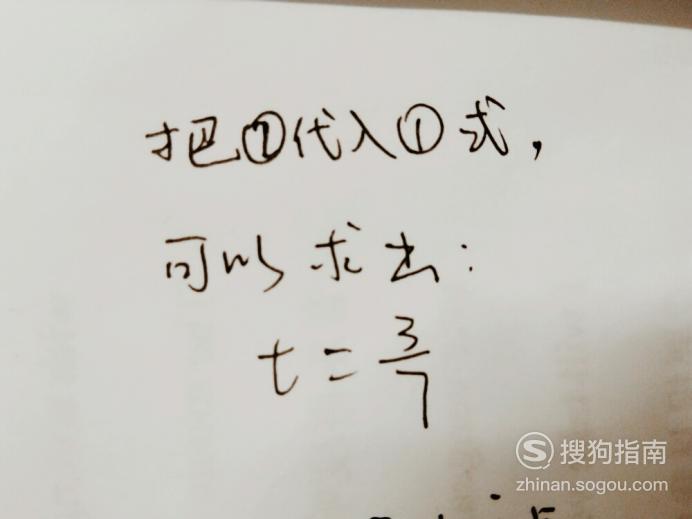 把②代入①式，
可以求出：
t=3/7
搜狗指南
zhinan.sogou.com